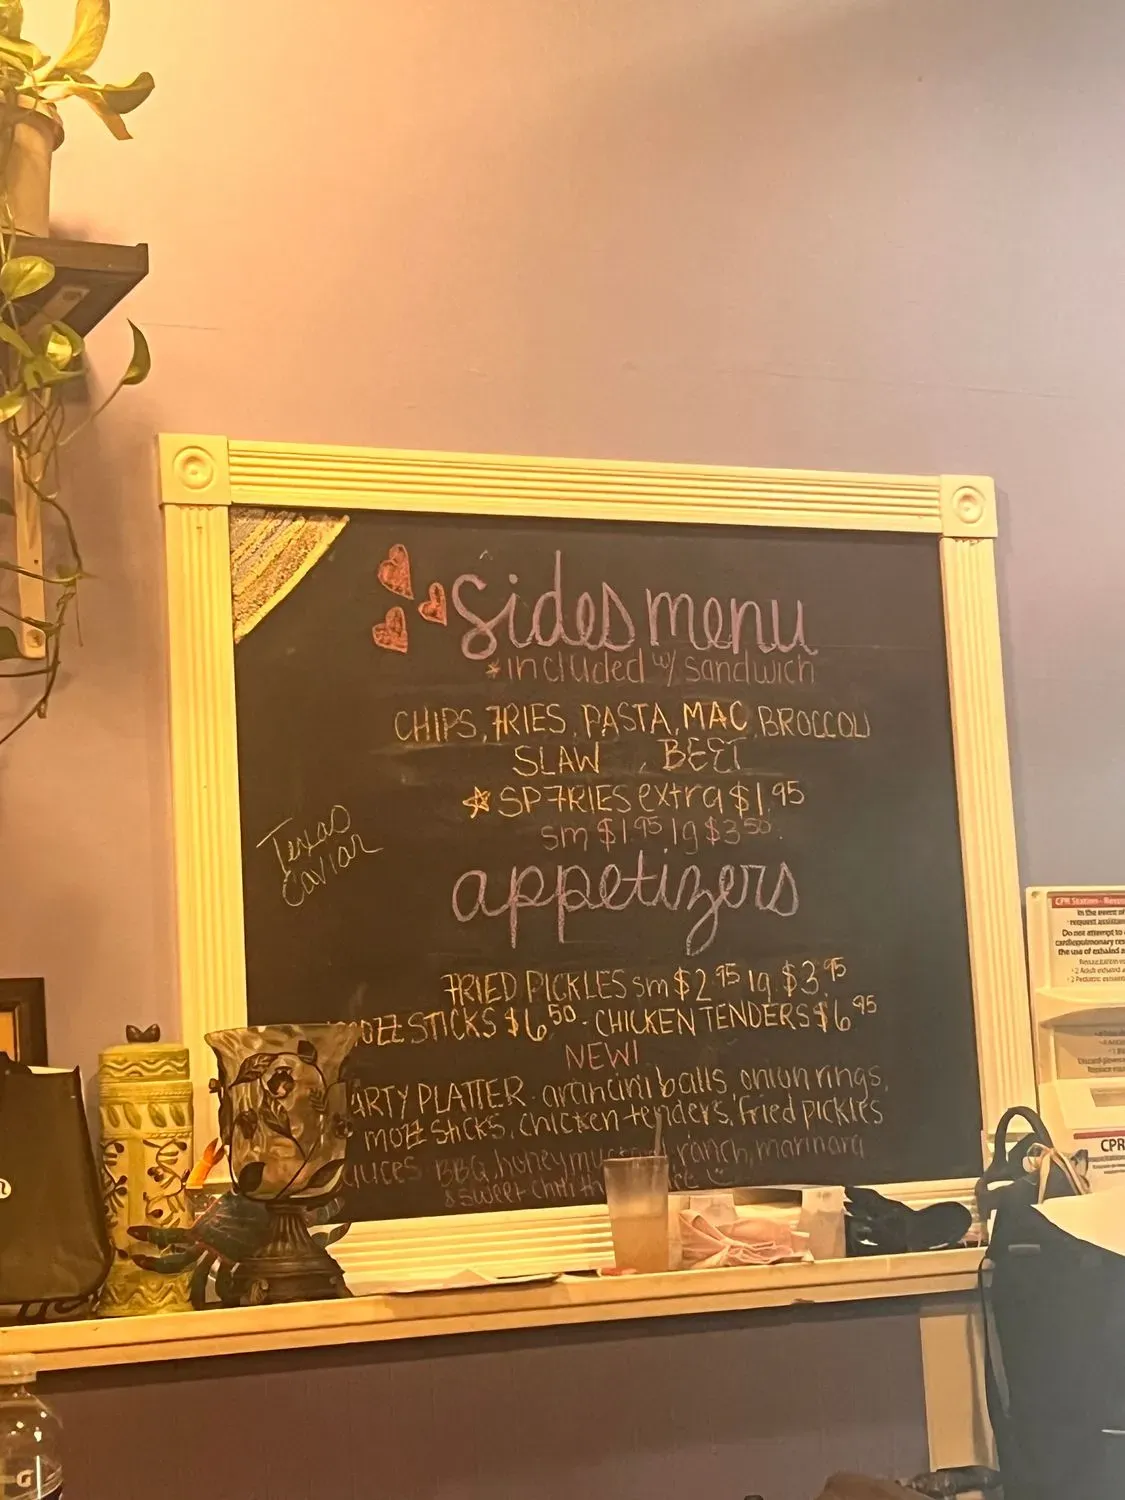 Sides menu
*included w/ sandwich
CHIPS, FRIES, PASTA, MAC, BROCCOLI
SLAW , BEET
☆ SP FRIES extra $1.95
sm $1.95 lg $3.50
Texas
Caviar
appetizers
FRIED PICKLES sm $2.95 lg. $3.95
MOZZ STICKS $6.50 - CHICKEN TENDERS $6.95
NEW!
PARTY PLATTER. arancini balls, onion rings,
mozz sticks, chicken tenders, fried pickles
sauces BBQ, honey mustard, ranch, marinara
& sweet chili
CPR Station
In the event of
request assistan
Do not attempt to
cardiopulmonary res
the use of exhaled a
CPR
G